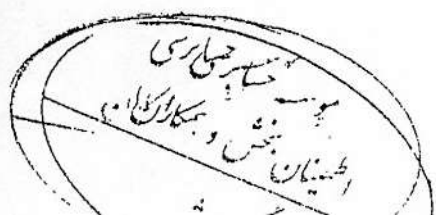 موسسه حسابرسی
اطمینان بخش و همکاران